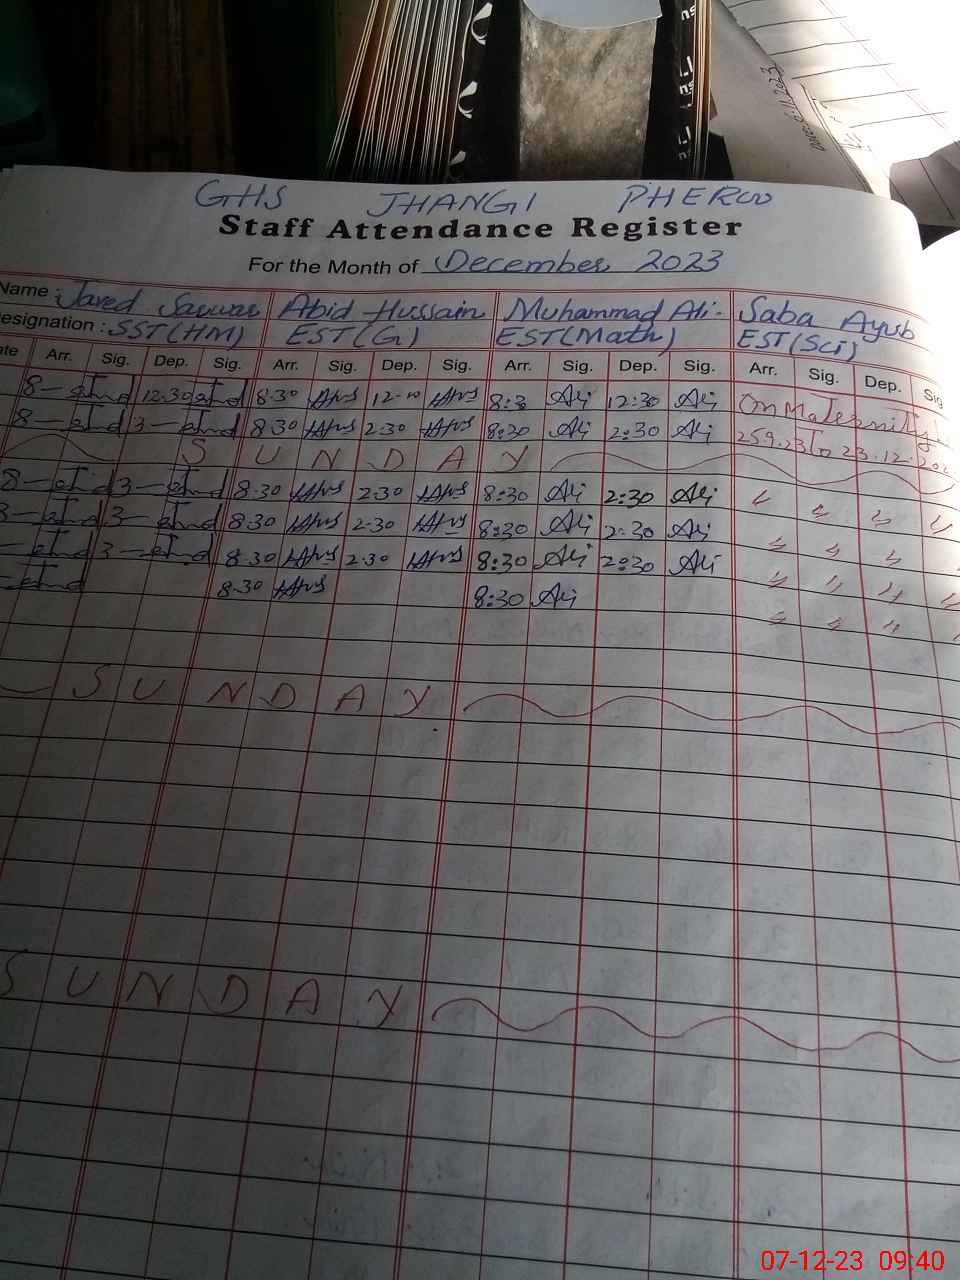 GHS JHANGI PHEROO
Staff Attendance Register
For the Month of December 2023
Name : Javed Sarwar Abid Hussain Muhammad Ali. Saba Ayub
esignation : SST(HM) EST(G) EST(Math) EST(Sci)
ate Arr. Sig. Dep. Sig. Arr. Sig. Dep. Sig. Arr. Sig. Dep. Sig. Arr. Sig. Dep. Sig
8- 12.30 8.30 12- 8:3 Ali 12:30 Ali On Maternity
8- 3- 8.30 2.30 8:30 Ali 2:30 Ali 25.9.23 To 23.12.202
S U N D A Y
8- 3- 8.30 2.30 8:30 Ali 2:30 Ali
8- 3- 8.30 2.30 8:30 Ali 2:30 Ali
- 3- 8.30 2.30 8:30 Ali 2:30 Ali
- 8.30 8:30 Ali
S U N D A Y
S U N D A Y
07-12-23 09:40